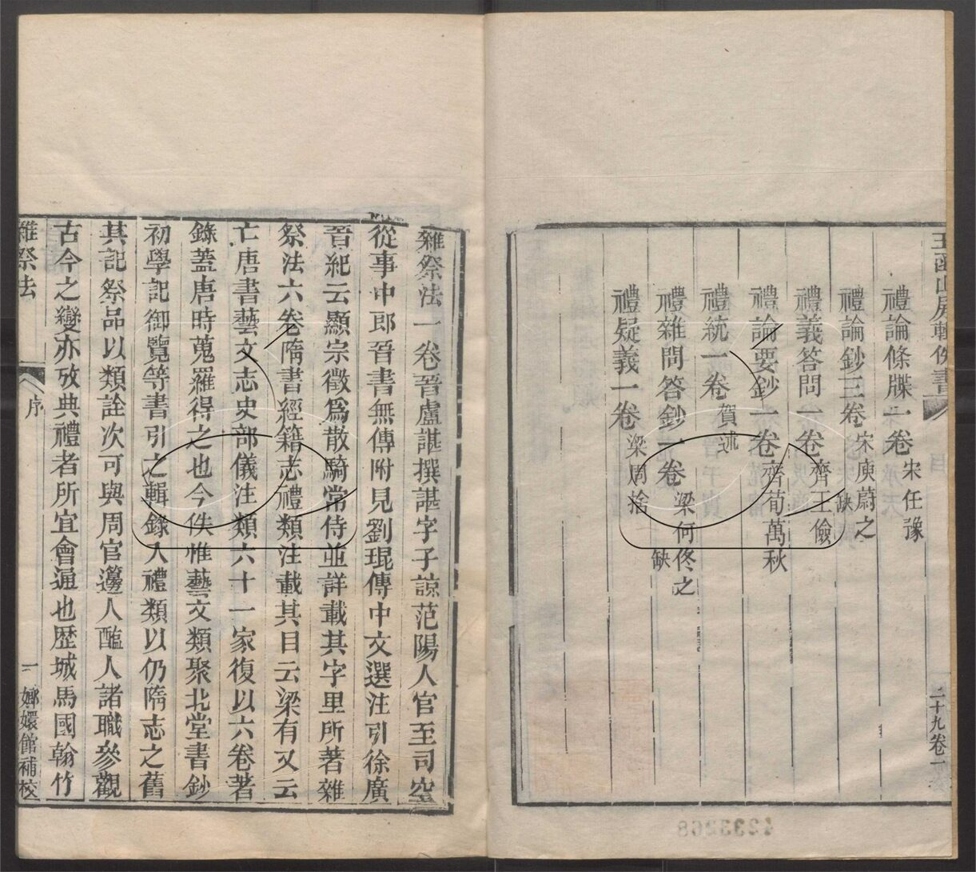 玉函山房輯佚書
二十九卷一
禮論條牒一卷 宋任豫
禮論鈔三卷 宋庾蔚之 缺
禮義答問一卷 齊王儉
禮論要鈔一卷 齊荀萬秋
禮統一卷 賀述
禮雜問答鈔一卷 梁何佟之 缺
禮疑義一卷 梁周捨
雜祭法一卷晉盧諶撰諶字子諒范陽人官至司空
從事中郎晉書無傳附見劉琨傳中文選注引徐廣
晉紀云顯宗徵爲散騎常侍並詳載其字里所著雜
祭法六卷隋書經籍志禮類注載其目云梁有又云
亡唐書藝文志史部儀注類六十一家復以六卷著
錄蓋唐時蒐羅得之也今佚惟藝文類聚北堂書鈔
初學記御覽等書引之輯錄入禮類以仍隋志之舊
其記祭品以類詮次可與周官籩人醢人諸職參觀
古今之變亦攷典禮者所宜會通也歴城馬國翰竹
雜祭法
序
一 嫏嬛館補校
4233268